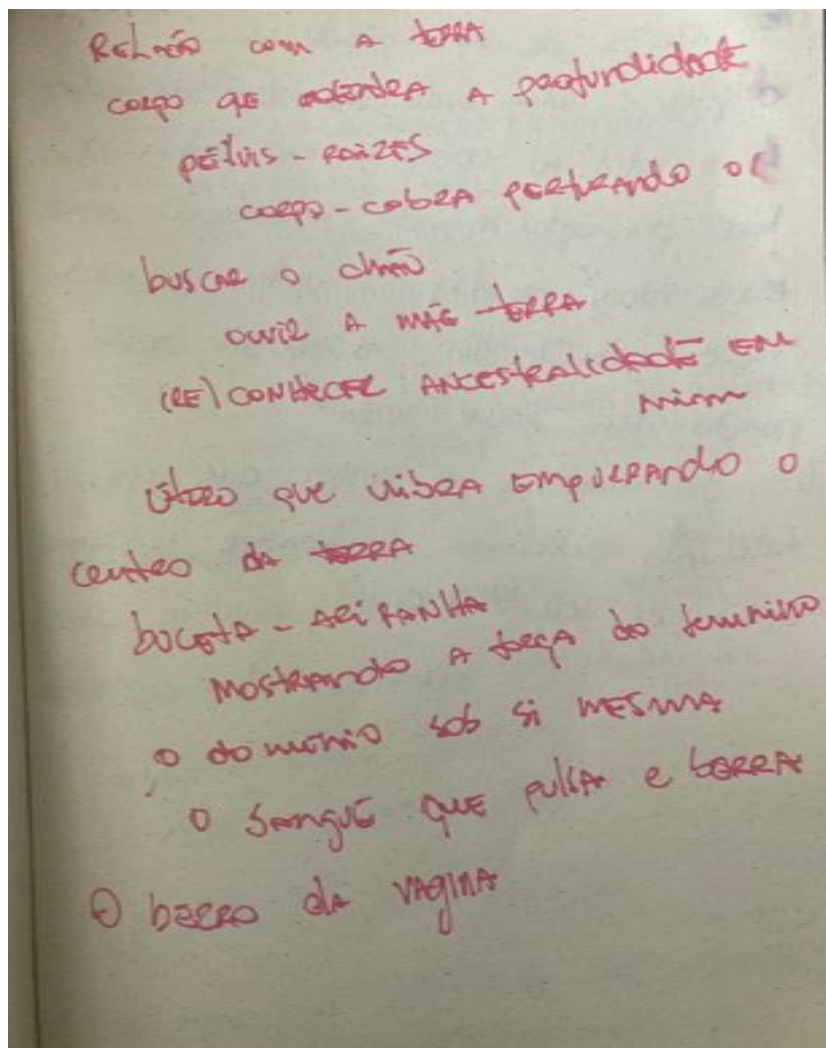 RELAÇÃO com A terra
corpo que adentra A profundidade
pélvis - RAÍZES
corpo - cobra perfurando o
buscar o chão
ouvir A mãe terra
(RE)CONHECER ANCESTRALIDADE EM
mim
útero que vibra EMPURRANDO o
centro da terra
buceta - ARIRANHA
MOSTRANDO A força do feminino
o domínio sob si MESMA
o sangue que pulsa e berra
O berro da vagina